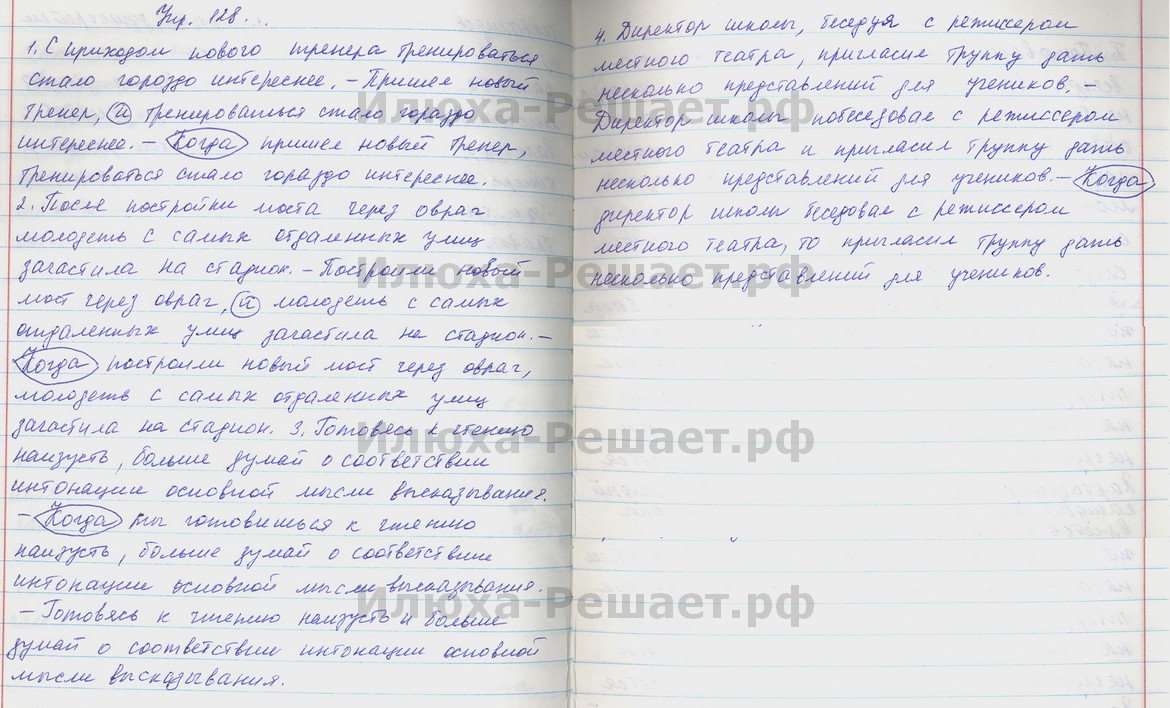 Упр. 128.
1. С приходом нового тренера тренироваться
стало гораздо интереснее. – Пришел новый
тренер, и тренироваться стало гораздо
интереснее. – Когда пришел новый тренер,
тренироваться стало гораздо интереснее.
2. После постройки моста через овраг
молодежь с самых отдаленных улиц
зачастила на стадион. – Построили новый
мост через овраг, и молодежь с самых
отдаленных улиц зачастила на стадион. –
Когда построили новый мост через овраг,
молодежь с самых отдаленных улиц
зачастила на стадион. 3. Готовясь к чтению
наизусть, больше думай о соответствии
интонации основной мысли высказывания.
– Когда ты готовишься к чтению
наизусть, больше думай о соответствии
интонации основной мысли высказывания.
– Готовясь к чтению наизусть и больше
думай о соответствии интонации основной
мысли высказывания.
4. Директор школы, беседуя с режиссером
местного театра, пригласил труппу дать
несколько представлений для учеников. –
Директор школы побеседовал с режиссером
местного театра и пригласил труппу дать
несколько представлений для учеников. – Когда
директор школы беседовал с режиссером
местного театра, то пригласил труппу дать
несколько представлений для учеников.
Илюха-Решает.рф
Илюха-Решает.рф
Илюха-Решает.рф
Илюха-Решает.рф